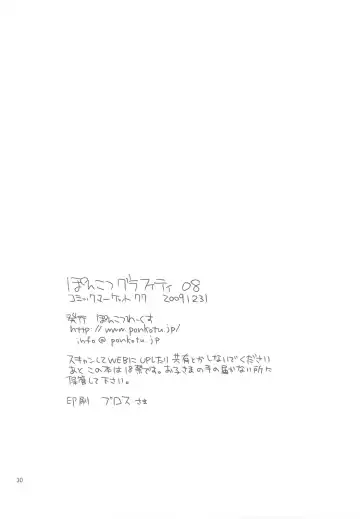 ぽんこつグラフィティ 08
コミックマーケット77 20091231
発行 ぽんこつわーくす
http://www.ponkotu.jp/
info@ponkotu.jp
スキャンしてWEBにUPしたり共有とかしないでください
あと この本は18禁です。お子さまの手の届かない所に
保管して下さい。
印刷 プロス さま
30